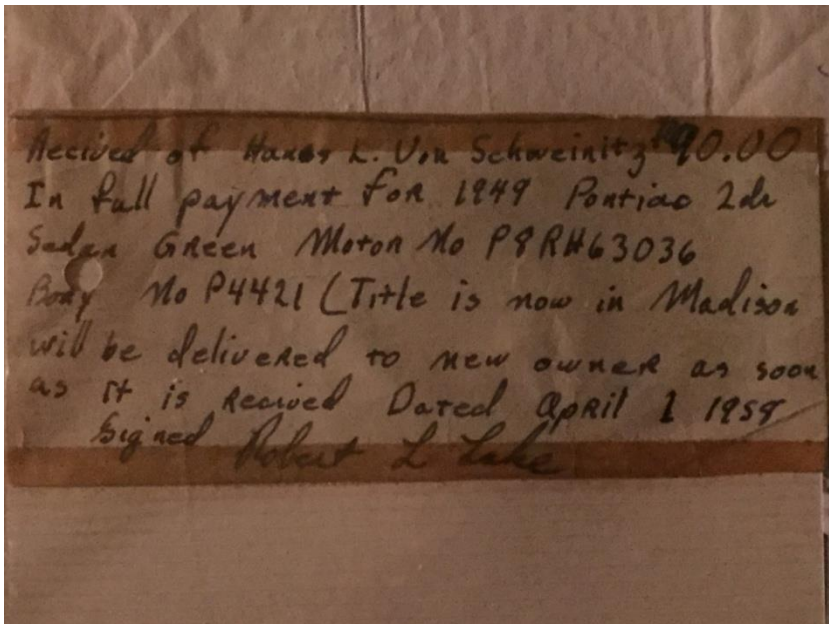 Recived of Hanes L. Von Schweinitz 90.00
In full payment for 1949 Pontiac 2dr
Sedan Green Motor No P8RH63036
Body No P4421 (Title is now in Madison
will be delivered to new owner as soon
as it is recived Dated April 1 1958
Signed Robert L Lake